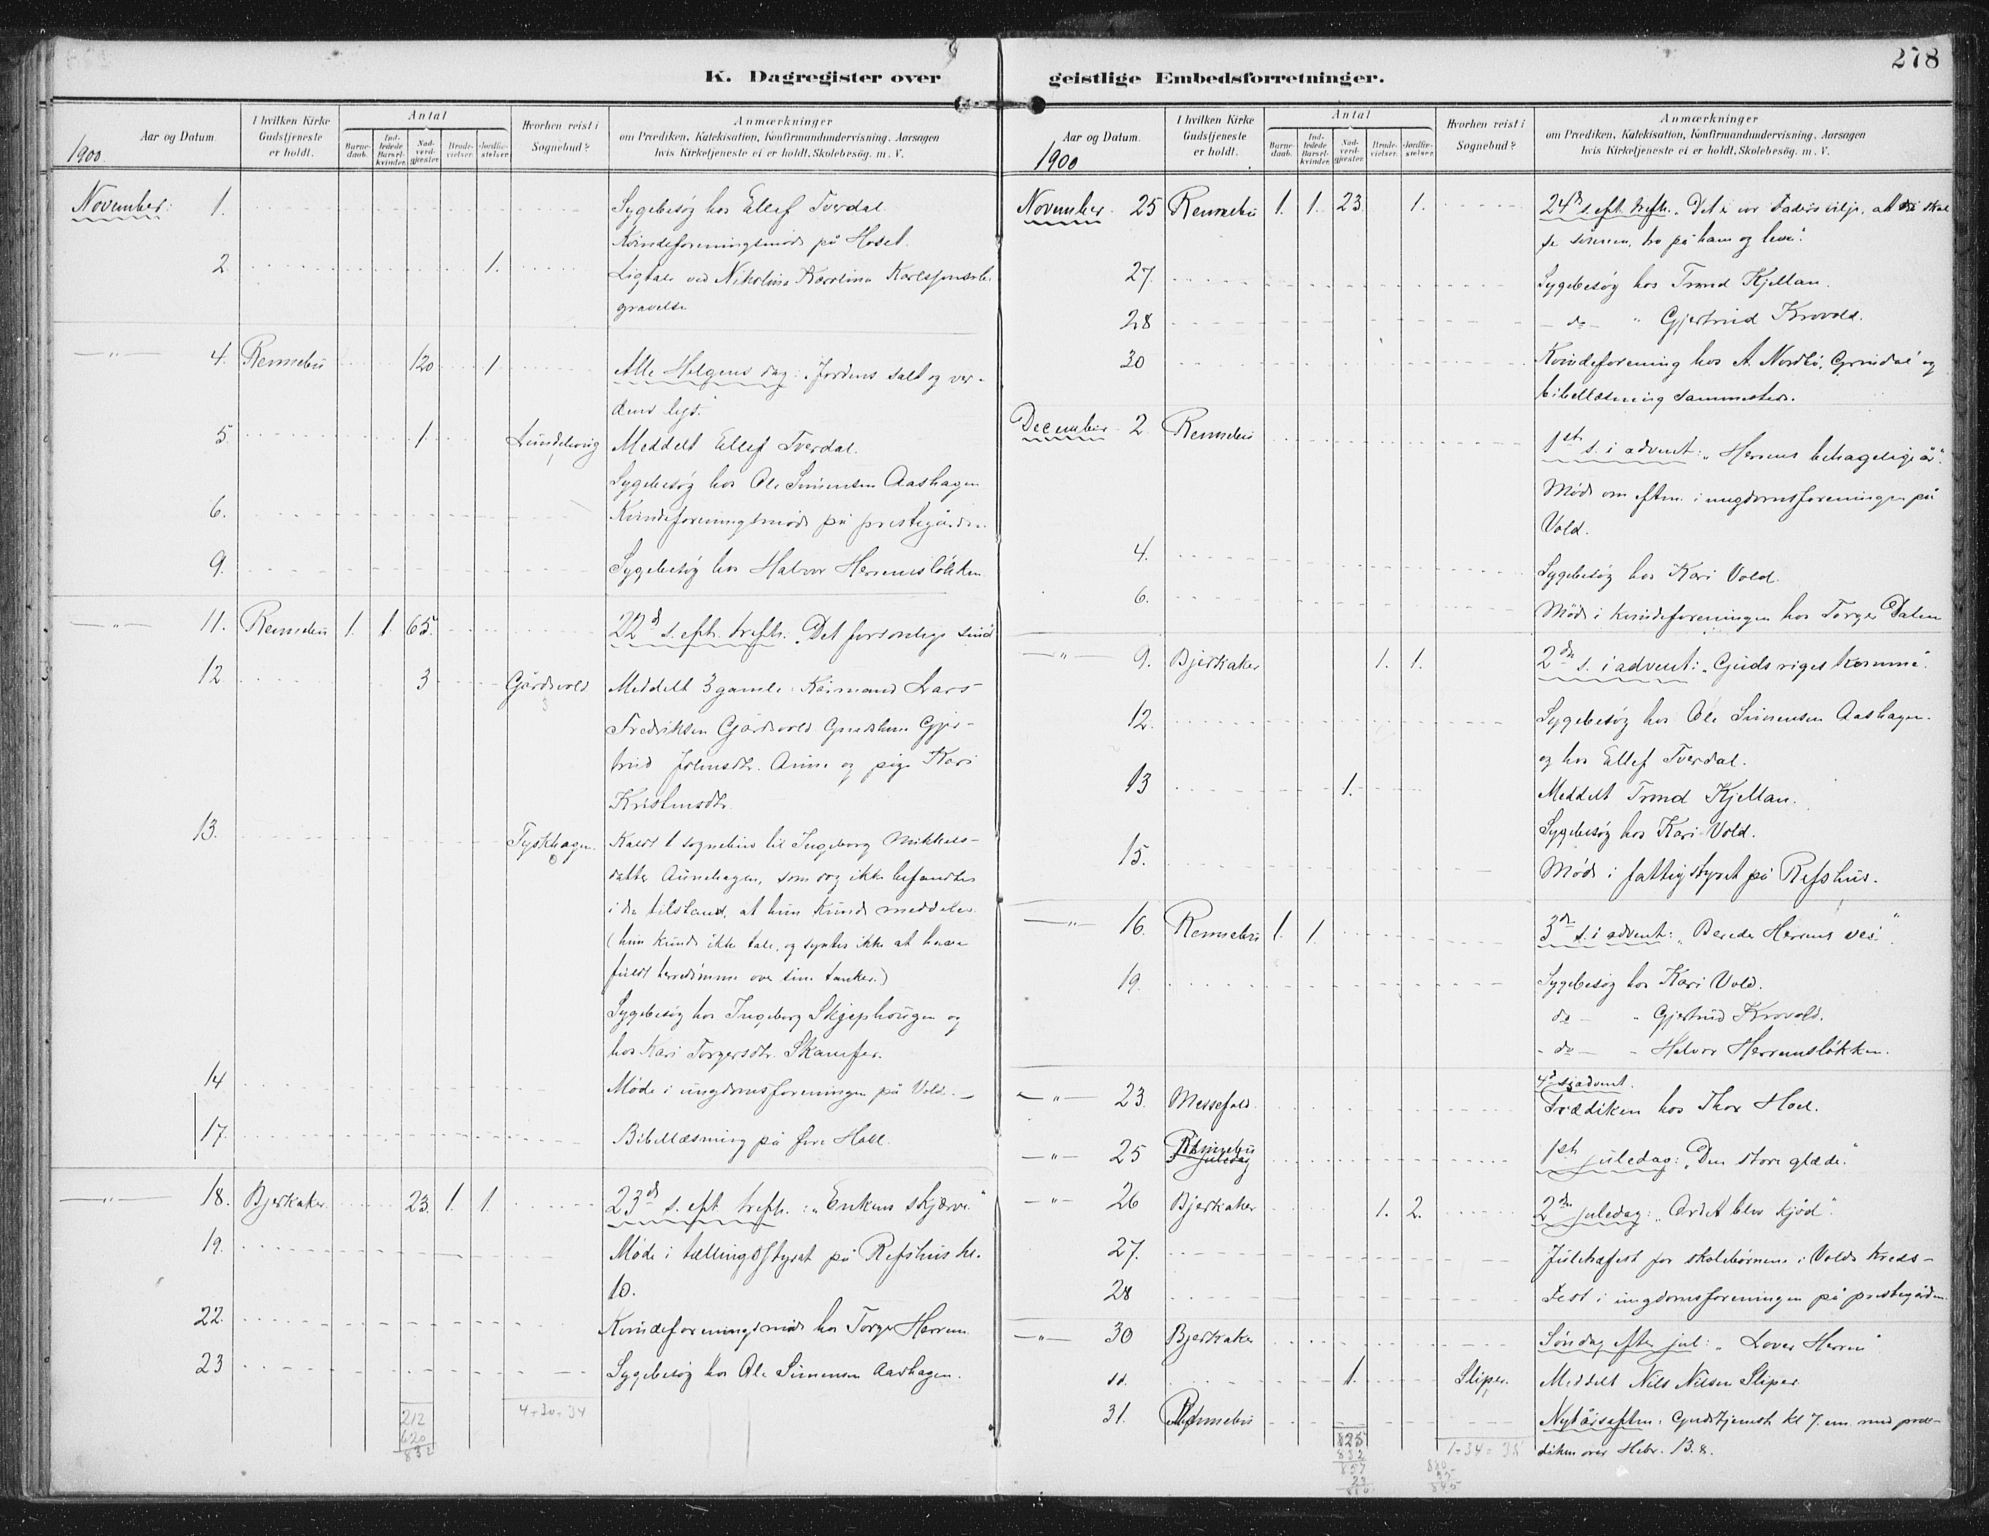 278
K. Dagregister over
Aar og Datum.
1900.
I hvilken Kirke Gudstjeneste er holdt.
Antal
Barne-daab.
Ind-ledede Barsel-kvinder.
Nad-verd-gjester.
Brude-vielser.
Jordfæ-stelser.
Hvorhen reist i Sognebud?
Anmærkninger
om Prædiken, Katekisation, Konfirmandundervisning. Aarsagen
hvis Kirketjeneste ei er holdt. Skolebesøg. m. V.
November: 1. Sygebesøg hos Ellef Tverdal.
Kvindeforeningsmøde på Hoset.
2. 1. Ligtale ved Nikoline Karoline be-
gravelse
4. Rennebu 120 1 Alle Helgens dag: Jordens salt og ver-
dens lys."
5. 1 Meddelt Ellef Tverdal.
Sygebesøg hos Ole Simensen Aashagen
6. Kvindeforeningsmøde på prestegården.
9. Sygebesøg hos Halvor Herremsløkken.
11. Rennebu 1. 1. 65. 22d s. eft. trefh. "Det forsonlige sind
12 3 Gårdsvold Meddelt 3 gamle: Kårmand Lars
Fredriksen Gårdsvold Gjer-
trud Johnsdtr. Aune og pige Kari
Kristensdtr.
13. Tyskhagen. Kaldt i sognebud til Ingeborg Mikkels-
datter Aunehagen, som dog ikke befandtes
i den tilstand, at hun kunde meddeles
(hun kunde ikke tale, og syntes ikke at have
fuldt herredømme over sine tanker.)
Sygebesøg hos Ingeborg Skjephougen og
hos Kari Torgersdtr. Skamfer.
14 Møde i ungdomsforeningen på Vold.
17. Bibellæsning på øvre Hall.
18. Bjerkaker 23. 1. 1. 23d s. eft. trefh.: "Enkens skjærv."
19. Møde i tællingsstyret på Refshus kl.
10.
22. Kvindeforeningsmøde hos Torger Herrem
23 Sygebesøg hos Ole Simensen Aashagen.
212
620
832
4+30=34
geistlige Embedsforretninger.
Aar og Datum.
1900
I hvilken Kirke Gudstjeneste er holdt.
Antal
Barne-daab.
Ind-ledede Barsel-kvinder.
Nad-verd-gjester.
Brude-vielser.
Jordfæ-stelser.
Hvorhen reist i Sognebud?
Anmærkninger
om Prædiken, Katekisation, Konfirmandundervisning, Aarsagen
hvis Kirketjeneste ei er holdt. Skolebesøg. m. V.
November 25 Rennebu 1. 1. 23. 1. 24de s. eft. trefh. "Det er vor Faders vilje, at vi skal
se sønnen, tro på ham og leve".
27. Sygebesøg hos Trond Kjellan.
28 - do - " Gjertrud Krovold.
30 Kvindeforening hos A. Nordbø, Grindal og
bibellæsning sammesteds.
December 2. Rennebu 1ste s. i advent: "Herrens behagelige år".
Møde om eftm. i ungdomsforeningen på
Vold.
4. Sygebesøg hos Kari Vold.
6. Møde i kvindeforeningen hos Torger Dalen
9. Bjerkaker 1. 1. 2den s. i advent: "Guds riges komme".
12. Sygebesøg hos Ole Simensen Aashagen.
og hos Ellef Tverdal.
13 1. Meddelt Trond Kjellan.
Sygebesøg hos Kari Vold.
15. Møde i fattigstyret på Refshus.
16. Rennebu 1. 1. 3die s. i advent: "Bered Herrens vei".
19. Sygebesøg hos Kari Vold.
do - " Gjertrud Krovold.
- do - " Halvor Herremsløkken.
4de s. i advent.
23. Messefald. Prædiken hos Thor Hoel.
25 Rennebu 1ste juledag: "Den store glæde."
26 Bjerkaker 1. 2. 2den juledag: "Ordet blev kjød".
27. Juletræfest for skolebørnene i Volds kreds-
28 Fest i ungdomsforeningen på prestegården
30 Bjerkaker Søndag efter jul: "Lover Herren"
sd. 1. Sliper. Meddelt Nils Nilsen Sliper
31. Rennebu Nytårsaften: Gudstjeneste kl 7 em. med præ-
diken over Hebr. 13.8.
825
832
857
1+34=35